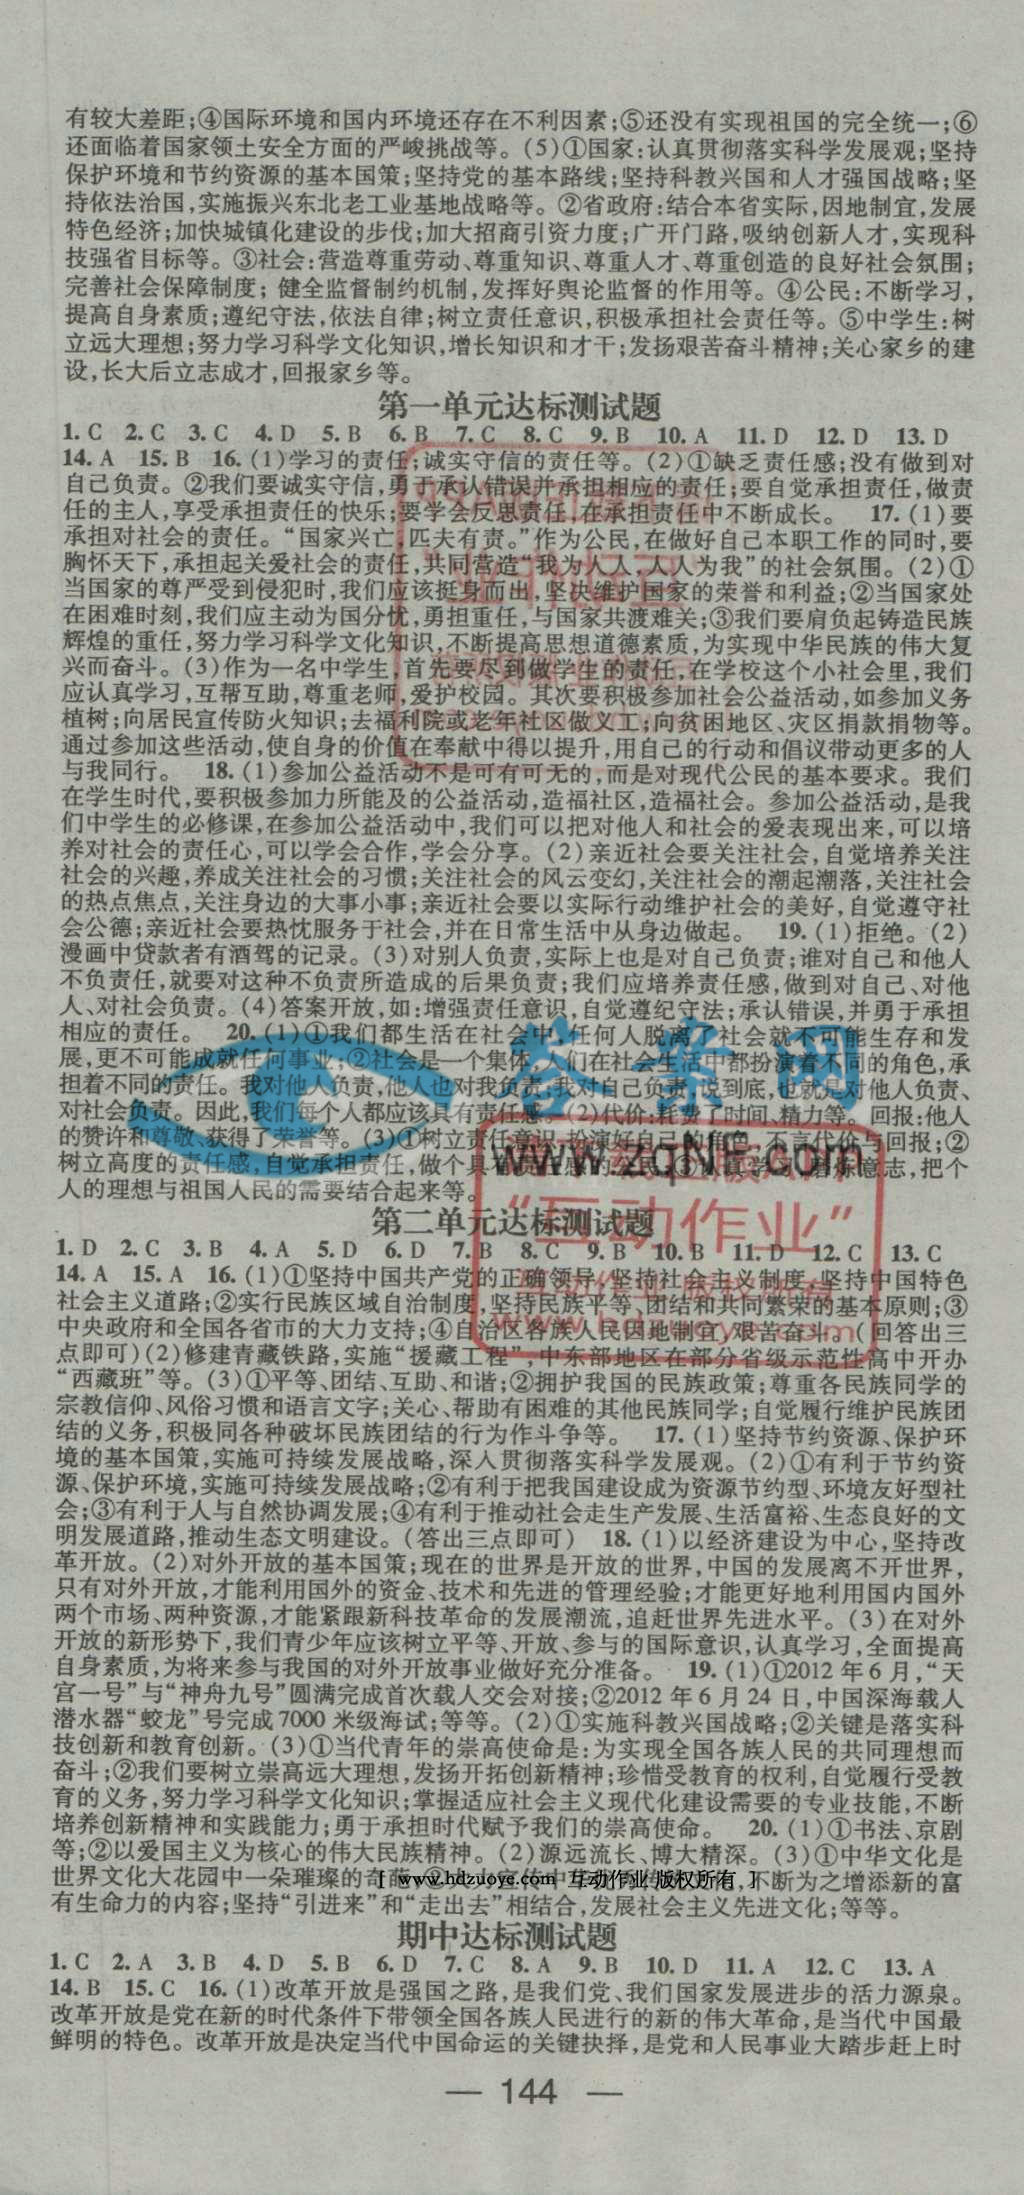 有较大差距;④国际环境和国内环境还存在不利因素;⑤还没有实现祖国的完全统一;⑥
还面临着国家领土安全方面的严峻挑战等。(5)①国家:认真贯彻落实科学发展观;坚持
保护环境和节约资源的基本国策;坚持党的基本路线;坚持科教兴国和人才强国战略;坚
持依法治国,实施振兴东北老工业基地战略等。②省政府:结合本省实际,因地制宜,发展
特色经济;加快城镇化建设的步伐;加大招商引资力度;广开门路,吸纳创新人才,实现科
技强省目标等。③社会:营造尊重劳动、尊重知识、尊重人才、尊重创造的良好社会氛围;
完善社会保障制度;健全监督制约机制,发挥好舆论监督的作用等。④公民:不断学习,
提高自身素质;遵纪守法,依法自律;树立责任意识,积极承担社会责任等。⑤中学生:树
立远大理想;努力学习科学文化知识,增长知识和才干;发扬艰苦奋斗精神;关心家乡的建
设,长大后立志成才,回报家乡等。
第一单元达标测试题
1. C 2. C 3. C 4. D 5. B 6. B 7. C 8. C 9. B 10. A 11. D 12. D 13. D
14. A 15. B 16. (1)学习的责任;诚实守信的责任等。(2)①缺乏责任感;没有做到对
自己负责。②我们要诚实守信,勇于承认错误并承担相应的责任;要自觉承担责任,做责
任的主人,享受承担责任的快乐;要学会反思责任,在承担责任中不断成长。 17. (1)要
承担对社会的责任。“国家兴亡,匹夫有责。”作为公民,在做好自己本职工作的同时,要
胸怀天下,承担起关爱社会的责任,共同营造“我为人人,人人为我”的社会氛围。(2)①
当国家的尊严受到侵犯时,我们应该挺身而出,坚决维护国家的荣誉和利益;②当国家处
在困难时刻,我们应主动为国分忧,勇担重任,与国家共渡难关;③我们要肩负起铸造民族
辉煌的重任,努力学习科学文化知识,不断提高思想道德素质,为实现中华民族的伟大复
兴而奋斗。(3)作为一名中学生,首先要尽到做学生的责任,在学校这个小社会里,我们
应认真学习,互帮互助,尊重老师,爱护校园。其次要积极参加社会公益活动,如参加义务
植树;向居民宣传防火知识;去福利院或老年社区做义工;向贫困地区、灾区捐款捐物等。
通过参加这些活动,使自身的价值在奉献中得以提升,用自己的行动和倡议带动更多的人
与我同行。 18. (1)参加公益活动不是可有可无的,而是对现代公民的基本要求。我们
在学生时代,要积极参加力所能及的公益活动,造福社区,造福社会。参加公益活动,是我
们中学生的必修课,在参加公益活动中,我们可以把对他人和社会的爱表现出来,可以培
养对社会的责任心,可以学会合作,学会分享。(2)亲近社会要关注社会,自觉培养关注
社会的兴趣,养成关注社会的习惯;关注社会的风云变幻,关注社会的潮起潮落,关注社会
的热点焦点,关注身边的大事小事;亲近社会要以实际行动维护社会的美好,自觉遵守社
会公德;亲近社会要热忱服务于社会,并在日常生活中从身边做起。 19. (1)拒绝。(2)
漫画中贷款者有酒驾的记录。(3)对别人负责,实际上也是对自己负责;谁对自己和他人
不负责任,就要对这种不负责所造成的后果负责;我们应培养责任感,做到对自己、对他
人、对社会负责。(4)答案开放,如:增强责任意识,自觉遵纪守法;承认错误,并勇于承担
相应的责任。 20. (1)①我们都生活在社会中,任何人脱离了社会就不可能生存和发
展,更不可能成就任何事业;②社会是一个集体,人们在社会生活中都扮演着不同的角色,承
担着不同的责任。我对他人负责,他人也对我负责;我对自己负责,说到底,也就是对他人负责、
对社会负责。因此,我们每个人都应该具有责任感。(2)代价:耗费了时间、精力等。 回报:他人
的赞许和尊敬、获得了荣誉等。(3)①树立责任意识,扮演好自己的角色,不言代价与回报;②
树立高度的责任感,自觉承担责任,做个具有责任感的公民;③认真学习,磨炼意志,把个
人的理想与祖国人民的需要结合起来等。
第二单元达标测试题
1. D 2. C 3. B 4. A 5. D 6. D 7. B 8. C 9. B 10. B 11. D 12. C 13. C
14. A 15. A 16. (1)①坚持中国共产党的正确领导,坚持社会主义制度,坚持中国特色
社会主义道路;②实行民族区域自治制度,坚持民族平等、团结和共同繁荣的基本原则;③
中央政府和全国各省市的大力支持;④自治区各族人民因地制宜,艰苦奋斗。(回答出三
点即可)(2)修建青藏铁路,实施“援藏工程”,中东部地区在部分省级示范性高中开办
“西藏班”等。(3)①平等、团结、互助、和谐;②拥护我国的民族政策;尊重各民族同学的
宗教信仰、风俗习惯和语言文字;关心、帮助有困难的其他民族同学;自觉履行维护民族团
结的义务,积极同各种破坏民族团结的行为作斗争等。 17. (1)坚持节约资源、保护环
境的基本国策,实施可持续发展战略,深人贯彻落实科学发展观。(2)①有利于节约资
源、保护环境,实施可持续发展战略;②有利于把我国建设成为资源节约型、环境友好型社
会;③有利于人与自然协调发展;④有利于推动社会走生产发展、生活富裕、生态良好的文
明发展道路,推动生态文明建设。(答出三点即可) 18. (1)以经济建设为中心,坚持改
革开放。(2)对外开放的基本国策;现在的世界是开放的世界,中国的发展离不开世界,
只有对外开放,才能利用国外的资金、技术和先进的管理经验;才能更好地利用国内国外
两个市场、两种资源,才能紧跟新科技革命的发展潮流,追赶世界先进水平。(3)在对外
开放的新形势下,我们青少年应该树立平等、开放、参与的国际意识,认真学习,全面提高
自身素质,为将来参与我国的对外开放事业做好充分准备。 19. (1)①2012年6月,“天
宫一号”与“神舟九号”圆满完成首次载人交会对接;②2012年6月24日,中国深海载人
潜水器“蛟龙”号完成7000米级海试;等等。(2)①实施科教兴国战略;②关键是落实科
技创新和教育创新。(3)①当代青年的崇高使命是:为实现全国各族人民的共同理想而
奋斗;②我们要树立崇高远大理想,发扬开拓创新精神;珍惜受教育的权利,自觉履行受教
育的义务,努力学习科学文化知识;掌握适应社会主义现代化建设需要的专业技能,不断
培养创新精神和实践能力;勇于承担时代赋予我们的崇高使命。 20. (1)①书法、京剧
等;②以爱国主义为核心的伟大民族精神。(2)源远流长、博大精深。(3)①中华文化是
世界文化大花园中一朵璀璨的奇葩,②大力宣传中华,不断为之增添新的富
有生命力的内容;坚持“引进来”和“走出去”相结合,发展社会主义先进文化;等等。
[ www.hdzuoye.com 互动作业 版权所有 ]
期中达标测试题
1. C 2. A 3. B 4. D 5. B 6. D 7. C 8. A 9. B 10. D 11. A 12. C 13. A
14. B 15. C 16. (1)改革开放是强国之路,是我们党、我们国家发展进步的活力源泉。
改革开放是党在新的时代条件下带领全国各族人民进行的新的伟大革命,是当代中国最
鲜明的特色。改革开放是决定当代中国命运的关键抉择,是党和人民事业大踏步赶上时
— 144 —
www.zqNF.com
“互动作业”
互动作业 版权所有
www.hdzuoye.com